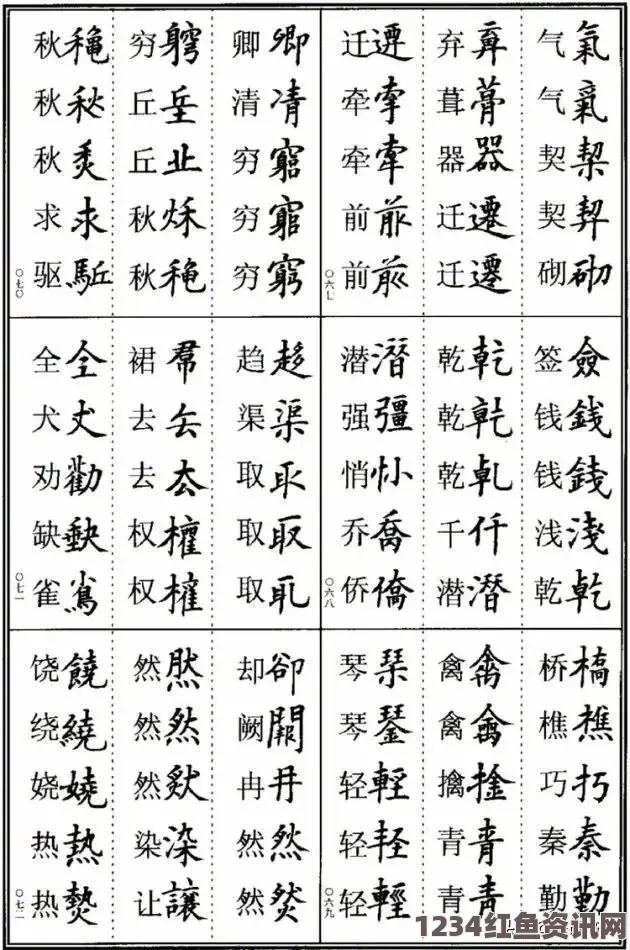 气氣气氣契契契契砌砌
弃弃葺葺器器迁遷迁遷
迁遷牵牵牵牵前前前前
〇六七
签僉钱錢钱錢浅淺乾乾
乾乾乾乾乾乾千仟潜潛
潜潛强彊悄悄乔喬侨僑
〇六八
桥橋樵樵巧巧秦秦勤勤
禽禽禽禽擒擒青青青青
琴琴琴琴轻輕轻轻轻輕
〇六九
卿卿清清穷窮穷窮穷窮
穷竆丘丘丘丘秋秋秋秋
秋秋秋秋秋秋求求驱駈
〇七〇
趋趍渠渠取取取取取取
裙帬去去去去权權权權
全全犬犬劝勸缺缺雀雀
〇七一
却卻阙闕冉冉然然然然
然然然然然然染染让讓
饶饒绕繞娆嬈热熱热热
〇七二
1234红鱼资讯网